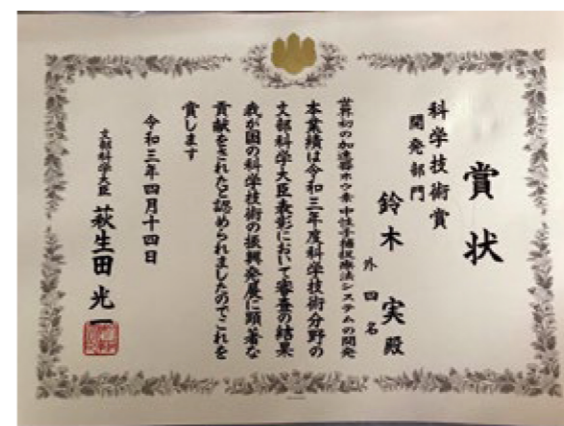 賞状
科学技術賞
開発部門
鈴木 実 殿
外四名
世界初の加速器ホウ素中性子捕捉療法システムの開発
本業績は令和三年度科学技術分野の
文部科学大臣表彰において審査の結果
我が国の科学技術の振興発展に顕著な
貢献をされたと認められましたのでこれを
賞します
令和三年四月十四日
文部科学大臣 萩生田光一